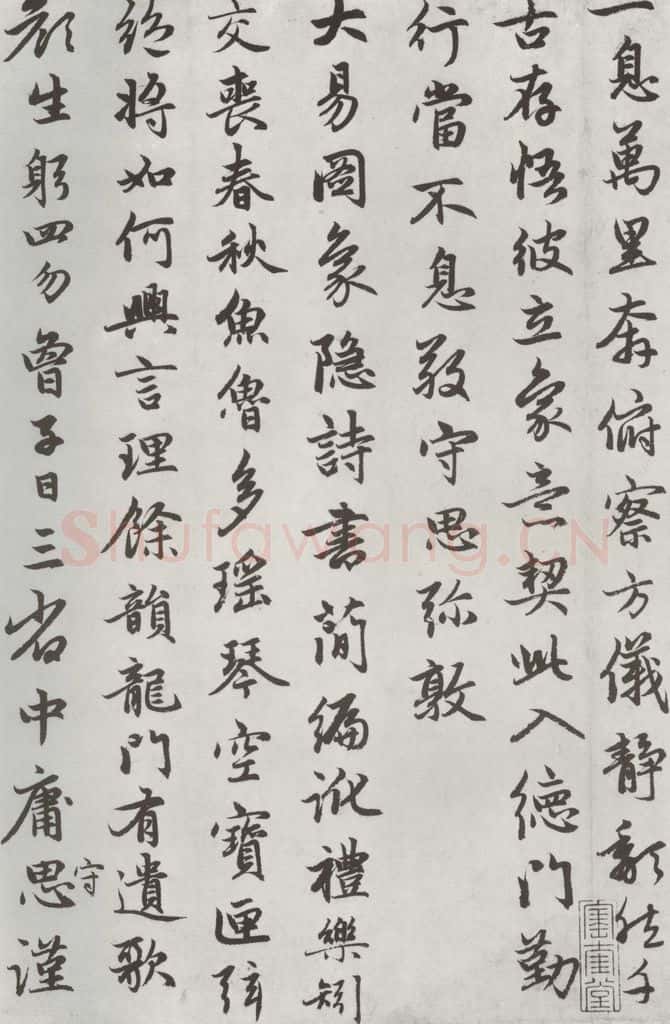 一息萬里奔俯察方儀靜頽然千
古存悟彼立象意契此入德門勤
行當不息敬守思弥敦
大易圖象隱詩書簡編訛禮樂矧
交喪春秋魚魯多瑶琴空寶匣弦
絶將如何興言理餘韻龍門有遺歌
顔生躬四勿曾子日三省中庸思謹
守
Shufawang.CN